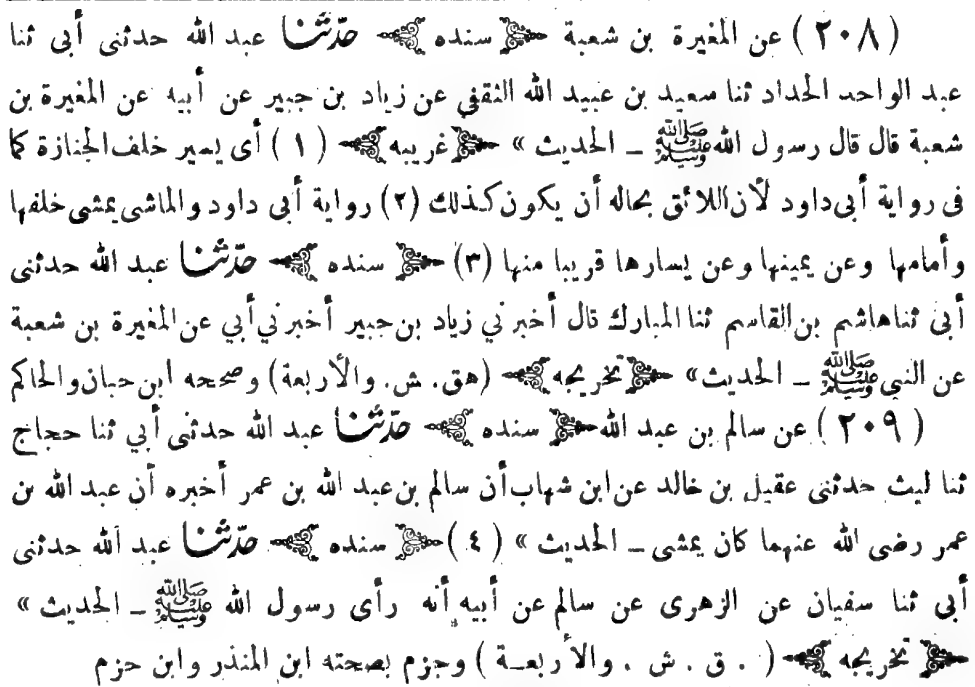 ( ٢٠٨ ) عن المغيرة بن شعبة ﴿ سنده ﴾ حدّثنا عبد الله حدثنى أبى ثنا
عبد الواحد الحداد ثنا سعيد بن عبيد الله الثقفى عن زياد بن جبير عن أبيه عن المغيرة بن
شعبة قال قال رسول الله ﷺ ـ الحديث » ﴿ غريبه ﴾ ( ١ ) أى يسير خلف الجنازة كما
فى رواية أبى داود لأن اللائق بحاله أن يكون كذلك (٢) رواية أبى داود والماشى يمشى خلفها
وأمامها وعن يمينها وعن يسارها قريبا منها (٣) ﴿ سنده ﴾ حدّثنا عبد الله حدثنى
أبى ثنا هاشم بن القاسم ثنا المبارك قال أخبرني زياد بن جبير أخبرني أبي عن المغيرة بن شعبة
عن النبى ﷺ ـ الحديث» ﴿ تخريجه ﴾ (هق. ش. والأربعة) وصححه ابن حبان والحاكم
( ٢٠٩ ) عن سالم بن عبد الله ﴿ سنده ﴾ حدّثنا عبد الله حدثنى أبي ثنا حجاج
ثنا ليث حدثنى عقيل بن خالد عن ابن شهاب أن سالم بن عبد الله بن عمر أخبره أن عبد الله بن
عمر رضى الله عنهما كان يمشى ـ الحديث » ( ٤ ) ﴿ سنده ﴾ حدّثنا عبد الله حدثنى
أبى ثنا سفيان عن الزهرى عن سالم عن أبيه أنه رأى رسول الله ﷺ ـ الحديث »
﴿ تخريجه ﴾ ( . ق . ش . والأربعـة ) وجزم بصحته ابن المنذر وابن حزم